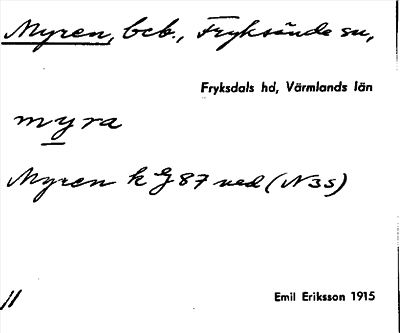 Myren, beb., Fryksände sn,
Fryksdals hd, Värmlands län
myra
Myren k G 87 ned (N 35)
Emil Eriksson 1915